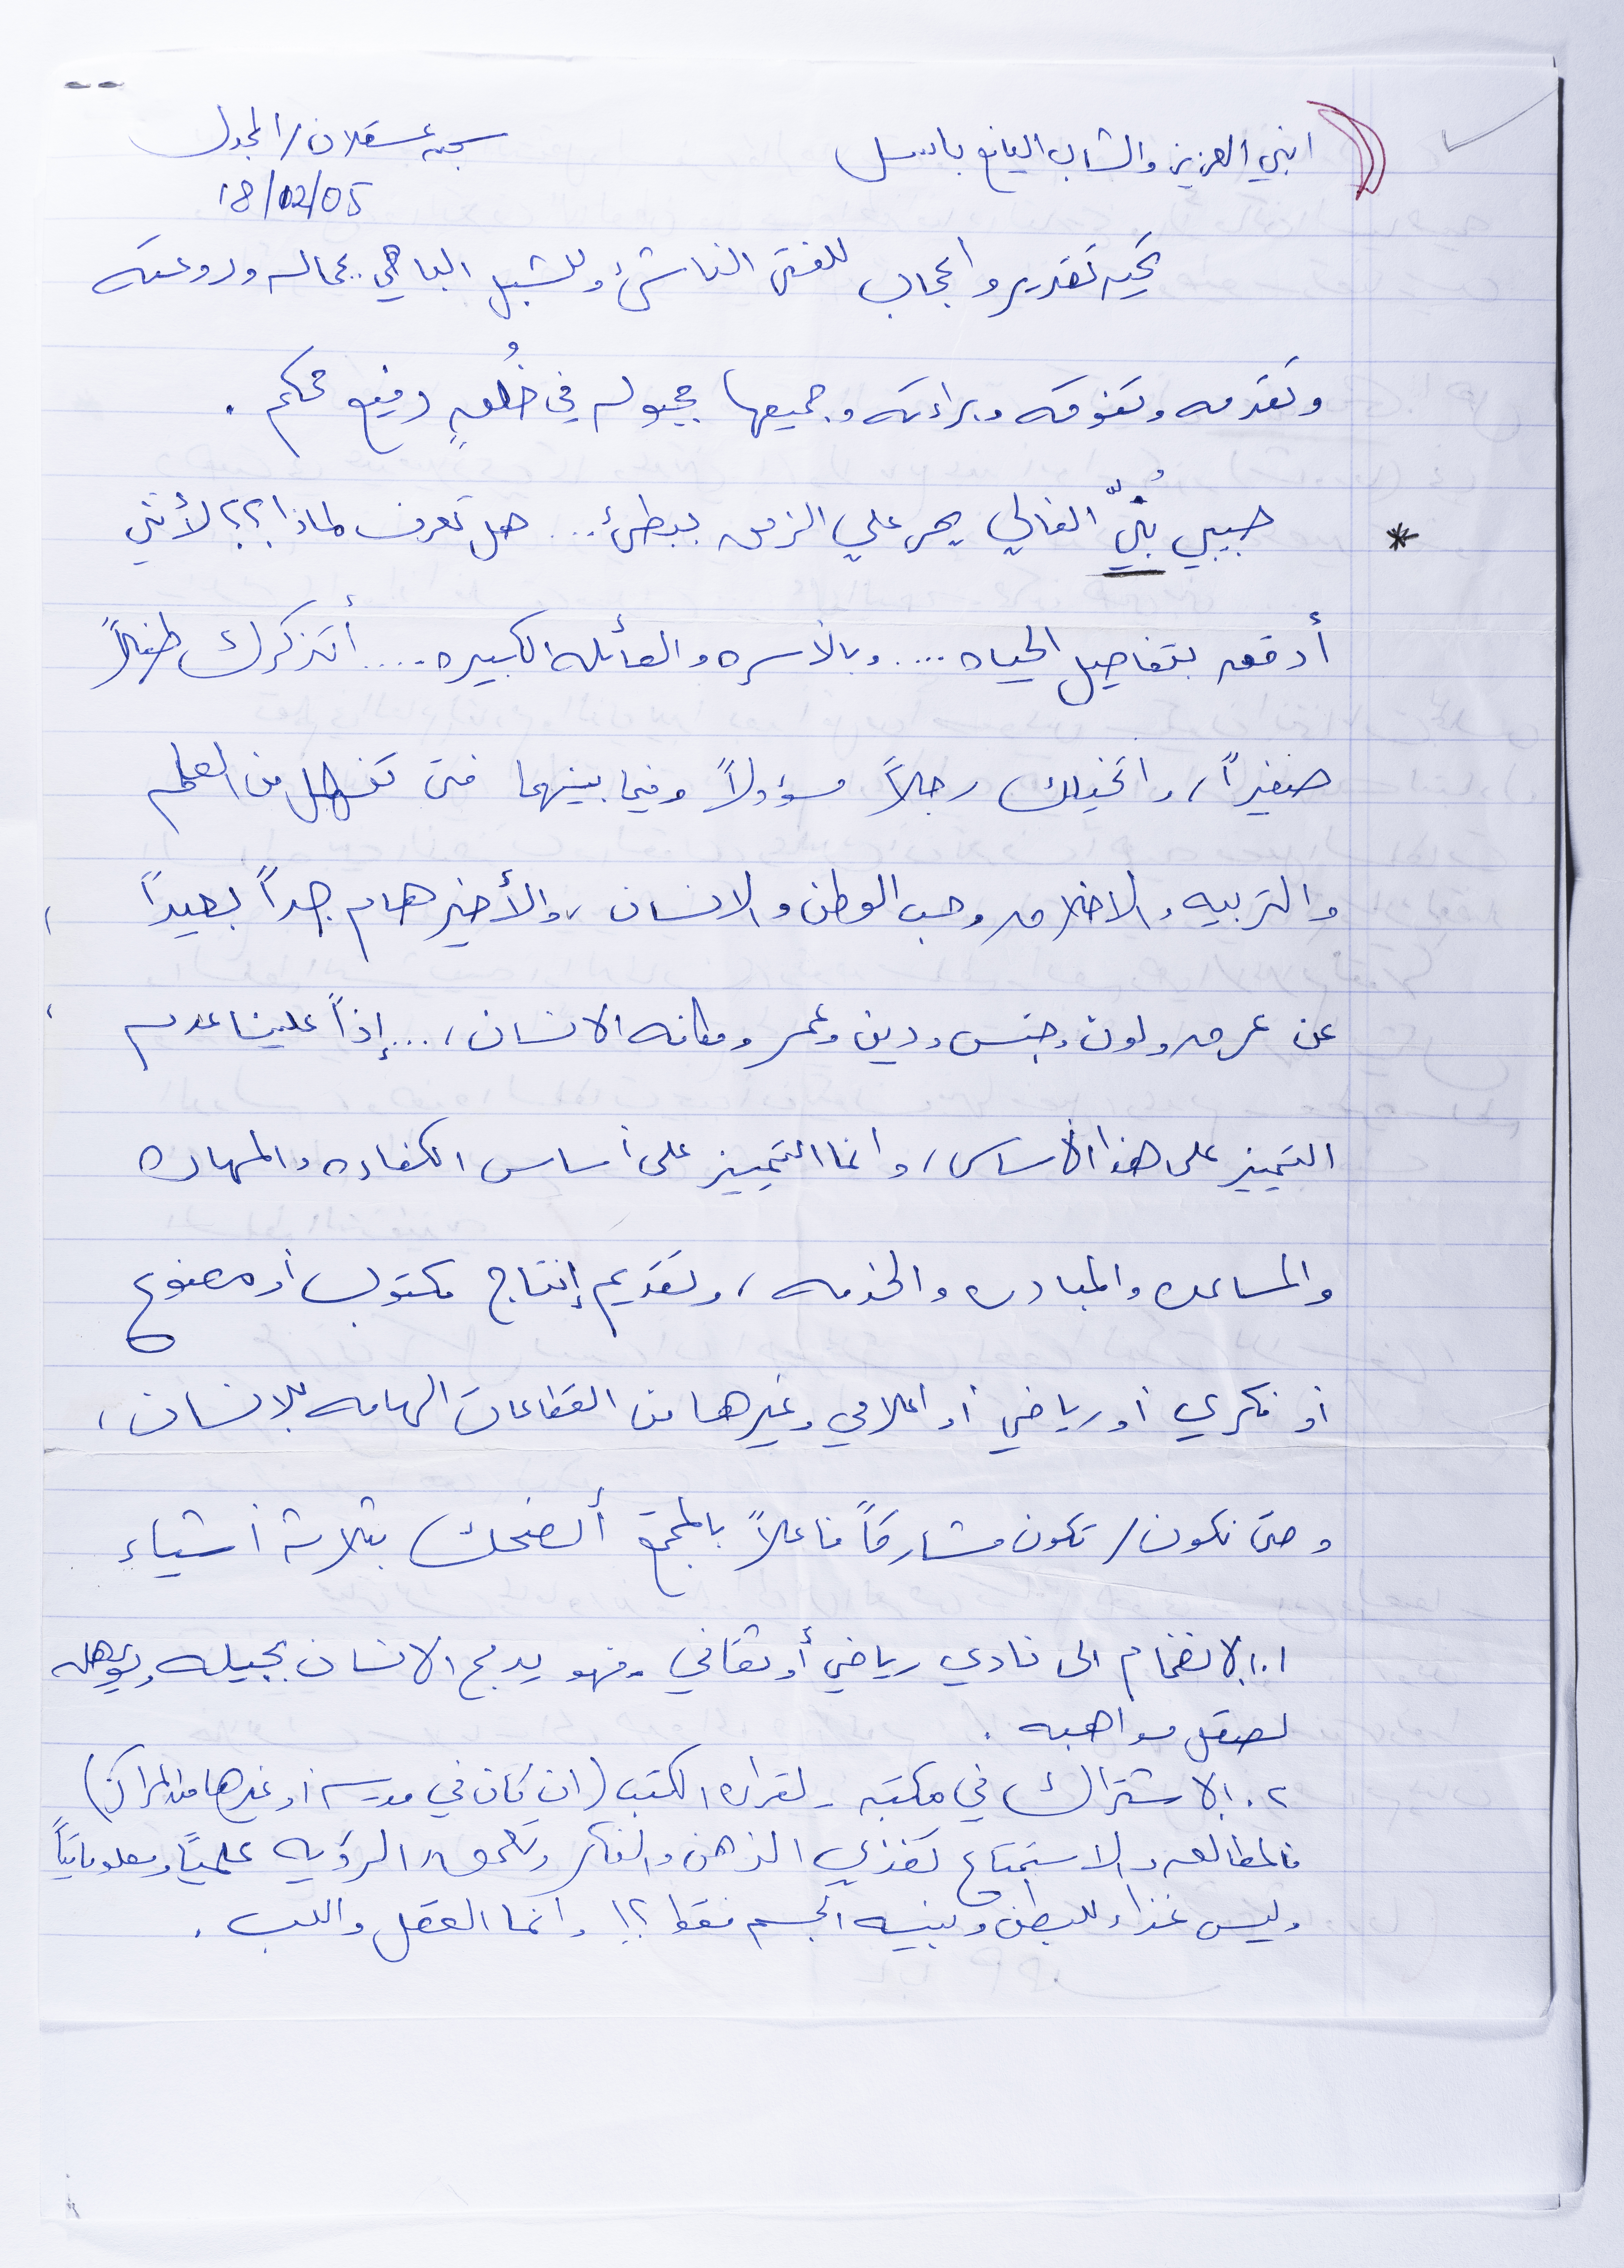 ابني العزيز والشاب اليافع باسل
سجن عسقلان/المجدل
18/02/05
تحيه تقدير واعجاب للفتى الناشئ وللشبل الباهي بجماله وروعته
وتقدمه وتفوقه وبراءته وجميعها مجبوله في خُلُقٍ رفيع محكم .
* حبيبي بُنيّ الغالي يمر علي الزمن ببطئ... هل تعرف لماذا؟؟ لأنني
أدقق بتفاصيل الحياه .... وبالأسره والعائله الكبيره .... أتذكرك طفلاً
صغيراً، واتخيلك رجلاً مسؤولاً وفيما بينهما فتى تنهل من العلم
والتربيه والاخلاق وحب الوطن والانسان، والأخير هام جداً بعيداً
عن عرق ولون وجنس ودين وعمر ومكانه الانسان، ... إذاً علينا عدم
التمييز على هذا الأساس، وانما التمييز على أساس الكفاءه والمهاره
والمساعده والمبادره والخدمه، وتقديم إنتاج مكتوب أو مصنوع
أو فكري أو رياضي أو اعلامي وغيرها من القطاعات الهامه للانسان،
وحتى نكون/ تكون مشاركاً فاعلاً بالمجتمع أنصحك بثلاثة أشياء
١. الانضمام الى نادي رياضي أو ثقافي. فهو يدمج الانسان بجيله ويؤهله
لصقل مواهبه .
٢. الاشتراك في مكتبه لقراءه الكتب (ان كان في مدرسه أو غيرها من المراكز)
فالمطالعه والاستمتاع تغذي الذهن والفكر وتعمق الرؤيه علمياً ومعلوماتياً
وليس غذاء للبطن وبنيه الجسم فقط؟! وانما العقل واللب .